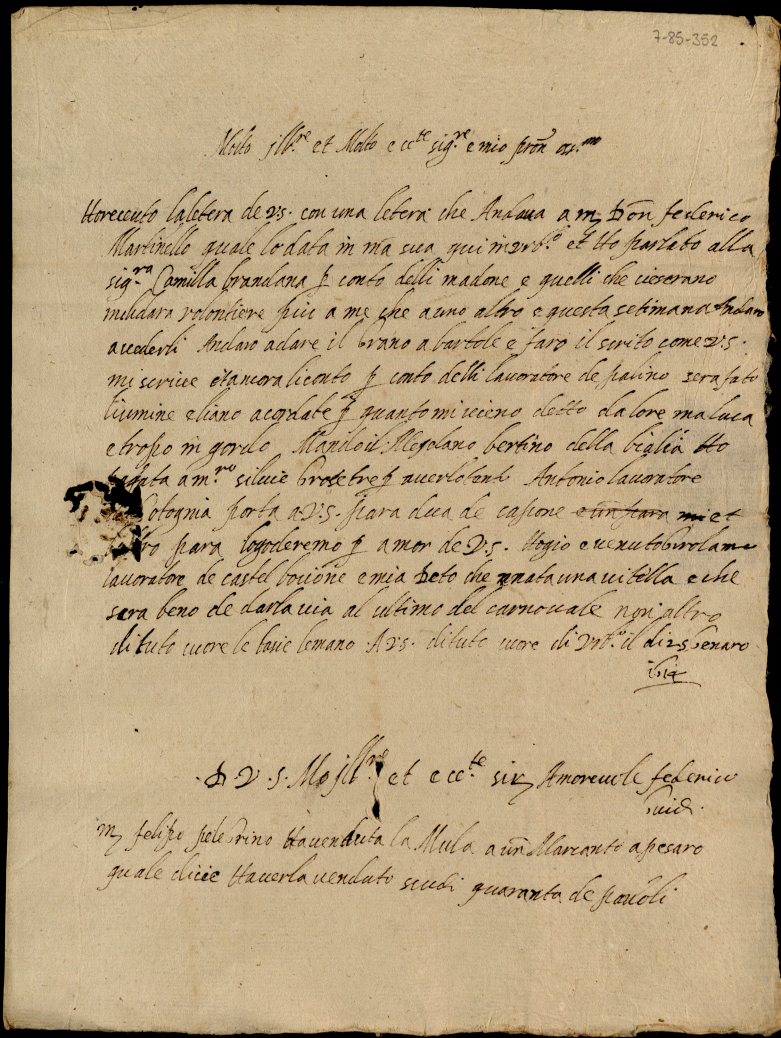 7-85-352
Molto Ill.re et Molto ecc.te sig.re e mio pron oss.mo
Ho receuto la letera de V.S. con una letera che Andava a m Don federico
Martinello quale lo data in ma sua qui in Urb.o et Ho parlato alla
sig.ra Camilla brandana p conto delli madone e quelli che
volontiere piu a me che a uno altro e questa setimana Andaro
a vederli Andaro a dare il Grano a bartole e faro il scrito come V.S.
mi scrive et ancora li conto p conto delli lavoratore de palino sera fato
liumine e liano acordate p quanto mi detto da lore ma luca
e tropo in gordo bertino della biglia Ho
a m.ro silvie p Antonio lavoratore
porta a V.S. para dua de capone e un para et
para logoderemo p amor de V.S. Hogio e venuto Girolamo
lavoratore de castel bocione e mia Deto che nata una vitella e che
sara beno de darla via al ultimo del carnovale non altro
di tuto cuore le basie le mano A V.S. di tuto cuore di Urb.o il di 25 Genaro
D. V. S. Mo Ill.re et ecc.te Amorevole federico
Guidi
m felipo pelegrino Ha venduta la Mula a un Marcanto a pesaro
quale dicie Haverla venduto scudi quaranta de pauoli